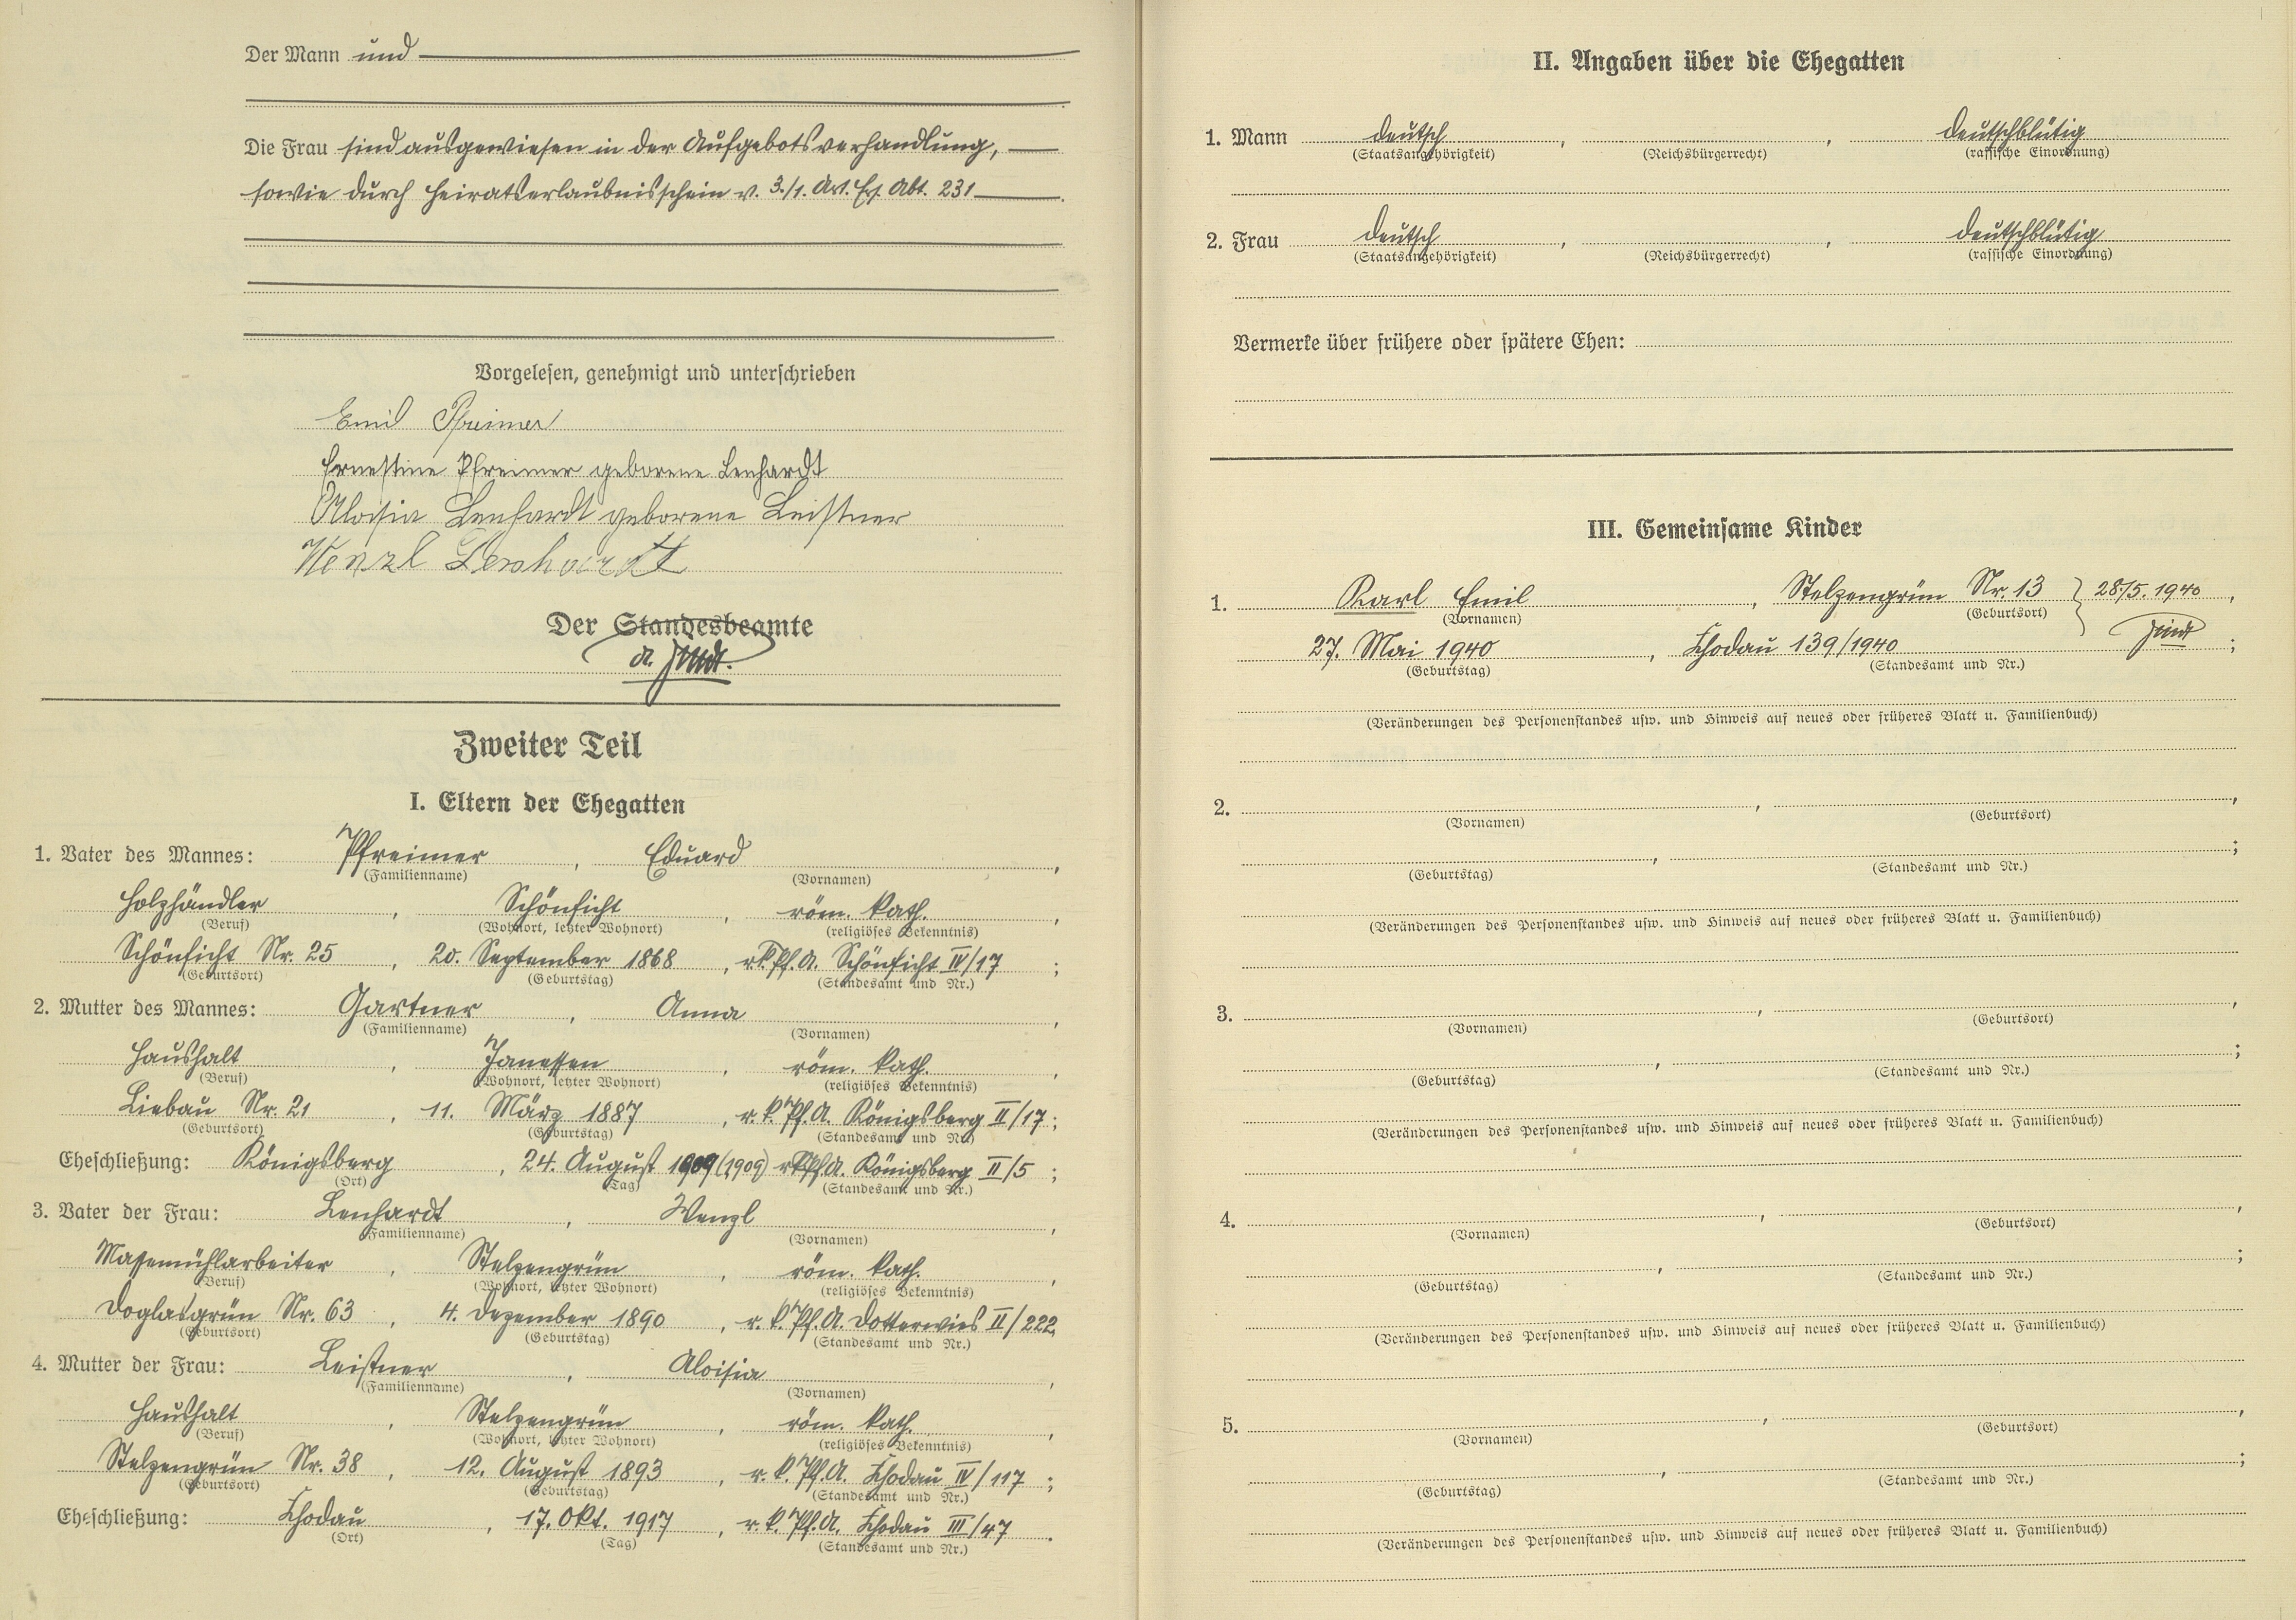 Der Mann und
Die Frau sind ausgewiesen in der Aufgebotsverhandlung,
sowie durch Heiratserlaubnisschein v. 3./1. Art. Ers. Abt. 231
Vorgelesen, genehmigt und unterschrieben
Emil Pfreimer
Ernestine Pfreimer geborene Lenhardt
Aloisia Lenhardt geborene Leistner
Wenzl Lenhardt
Der Standesbeamte
Zweiter Teil
I. Eltern der Ehegatten
1. Vater des Mannes: Pfreimer, Eduard,
(Familienname) (Vornamen)
Holzhändler, Schönficht, röm. kath.,
(Beruf) (Wohnort, letzter Wohnort) (religiöses Bekenntnis)
Schönficht Nr. 25, 20. September 1868, rk. Pf. A. Schönficht IV/17;
(Geburtsort) (Geburtstag) (Standesamt und Nr.)
2. Mutter des Mannes: Gartner, Anna,
(Familienname) (Vornamen)
Haushalt, Janessen, röm. kath.,
(Beruf) (Wohnort, letzter Wohnort) (religiöses Bekenntnis)
Liebau Nr. 21, 11. März 1887, r. k. Pf. A. Königsberg II/17;
(Geburtsort) (Geburtstag) (Standesamt und Nr.)
Eheschließung: Königsberg, 24. August 1909 (1909) rk Pf. A. Königsberg II/5;
(Ort) (Tag) (Standesamt und Nr.)
3. Vater der Frau: Lenhardt, Wenzl,
(Familienname) (Vornamen)
Massemühlarbeiter, Stelzengrün, röm. kath.,
(Beruf) (Wohnort, letzter Wohnort) (religiöses Bekenntnis)
Doglasgrün Nr. 63, 4. Dezember 1890, r. k. Pf. A. Dotterwies II/222,
(Geburtsort) (Geburtstag) (Standesamt und Nr.)
4. Mutter der Frau: Leistner, Aloisia,
(Familienname) (Vornamen)
Haushalt, Stelzengrün, röm. kath.,
(Beruf) (Wohnort, letzter Wohnort) (religiöses Bekenntnis)
Stelzengrün Nr. 38, 12. August 1893, r. k. Pf. A. Chodau IV/117;
(Geburtsort) (Geburtstag) (Standesamt und Nr.)
Eheschließung: Chodau, 17. Okt. 1917, r. k. Pf. A. Chodau III/47.
(Ort) (Tag) (Standesamt und Nr.)
II. Angaben über die Ehegatten
1. Mann deutsch, , deutschblütig
(Staatsangehörigkeit) (Reichsbürgerrecht) (rassische Einordnung)
2. Frau deutsch, , deutschblütig
(Staatsangehörigkeit) (Reichsbürgerrecht) (rassische Einordnung)
Vermerke über frühere oder spätere Ehen:
III. Gemeinsame Kinder
1. Karl Emil, Stelzengrün Nr. 13 } 28./5. 1940,
(Vornamen) (Geburtsort)
27. Mai 1940, Chodau 139/1940;
(Geburtstag) (Standesamt und Nr.)
(Veränderungen des Personenstandes usw. und Hinweis auf neues oder früheres Blatt u. Familienbuch)
2. , ,
(Vornamen) (Geburtsort)
, ;
(Geburtstag) (Standesamt und Nr.)
(Veränderungen des Personenstandes usw. und Hinweis auf neues oder früheres Blatt u. Familienbuch)
3. , ,
(Vornamen) (Geburtsort)
, ;
(Geburtstag) (Standesamt und Nr.)
(Veränderungen des Personenstandes usw. und Hinweis auf neues oder früheres Blatt u. Familienbuch)
4. , ,
(Vornamen) (Geburtsort)
, ;
(Geburtstag) (Standesamt und Nr.)
(Veränderungen des Personenstandes usw. und Hinweis auf neues oder früheres Blatt u. Familienbuch)
5. , ,
(Vornamen) (Geburtsort)
, ;
(Geburtstag) (Standesamt und Nr.)
(Veränderungen des Personenstandes usw. und Hinweis auf neues oder früheres Blatt u. Familienbuch)